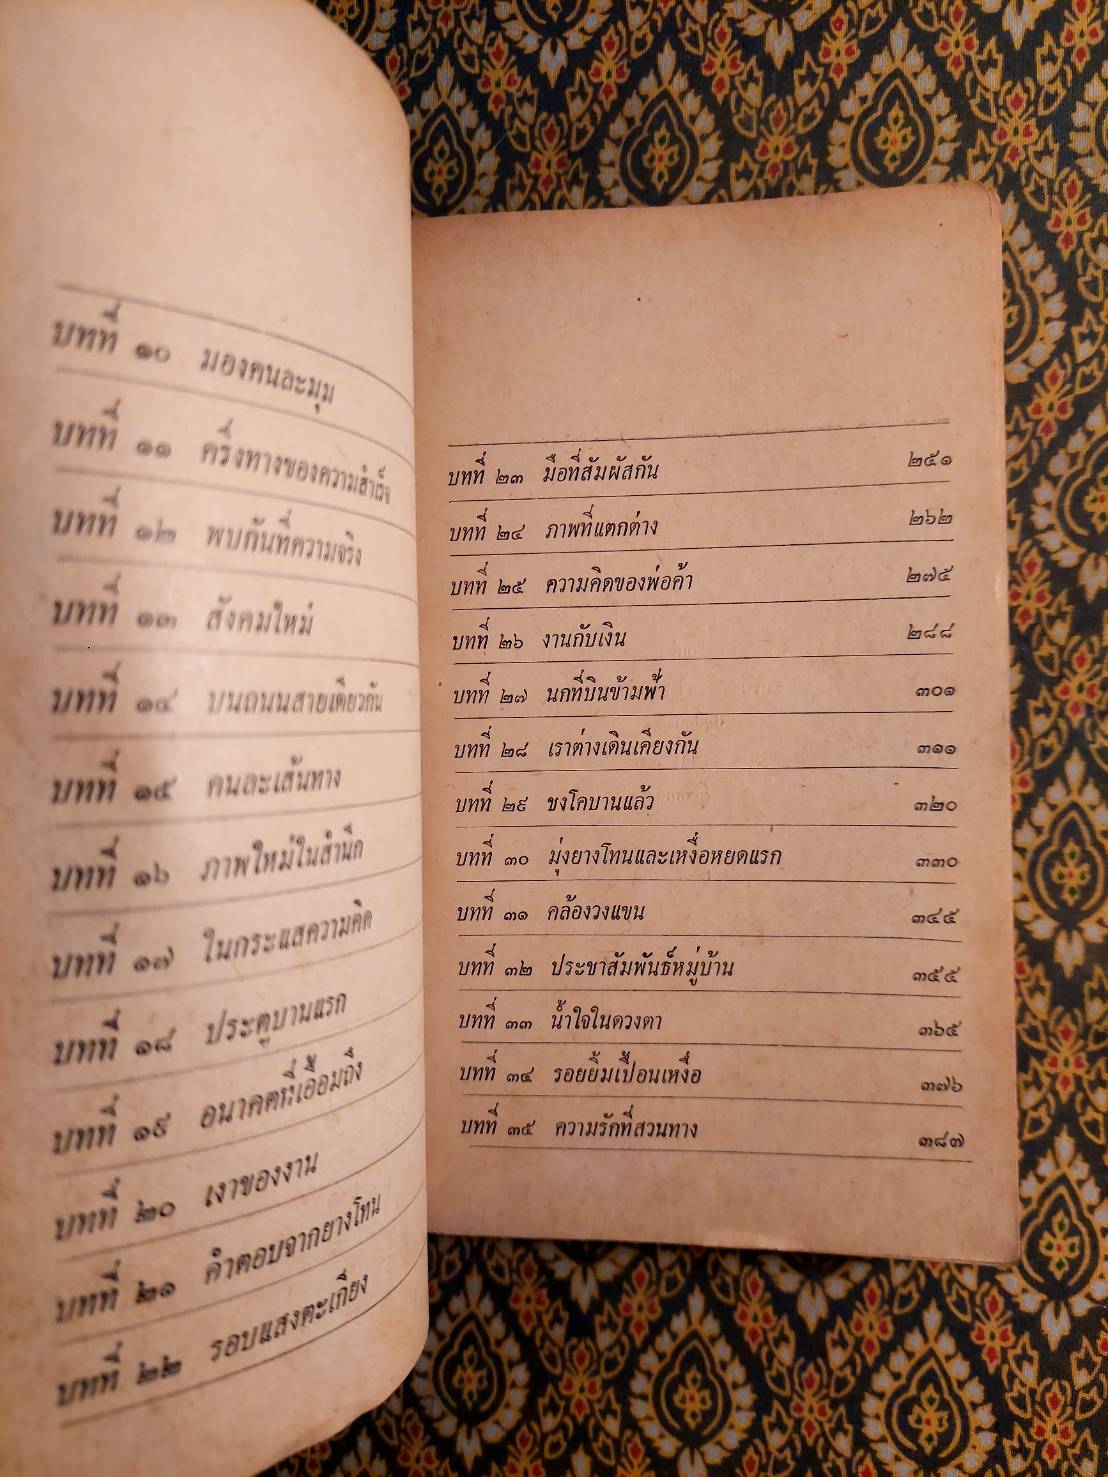 บทที่ ๑๐ มองคนละมุม
บทที่ ๑๑ ครึ่งทางของความสำเร็จ
บทที่ ๑๒ พบกันที่ความจริง
บทที่ ๑๓ สังคมใหม่
บทที่ ๑๔ บนถนนสายเดียวกัน
บทที่ ๑๕ คนละเส้นทาง
บทที่ ๑๖ ภาพใหม่ในสำนึก
บทที่ ๑๗ ในกระแสความคิด
บทที่ ๑๘ ประตูบานแรก
บทที่ ๑๙ อนาคตที่เอื้อมถึง
บทที่ ๒๐ เงาของงาน
บทที่ ๒๑ คำตอบจากยางโทน
บทที่ ๒๒ รอบแสงตะเกียง
บทที่ ๒๓ มือที่สัมผัสกัน ๒๕๑
บทที่ ๒๔ ภาพที่แตกต่าง ๒๖๒
บทที่ ๒๕ ความคิดของพ่อค้า ๒๗๕
บทที่ ๒๖ งานกับเงิน ๒๘๘
บทที่ ๒๗ นกที่บินข้ามฟ้า ๓๐๑
บทที่ ๒๘ เราต่างเดินเคียงกัน ๓๑๑
บทที่ ๒๙ ชงโคบานแล้ว ๓๒๐
บทที่ ๓๐ มุ่งยางโทนและเหงื่อหยดแรก ๓๓๐
บทที่ ๓๑ คล้องวงแขน ๓๔๕
บทที่ ๓๒ ประชาสัมพันธ์หมู่บ้าน ๓๕๕
บทที่ ๓๓ น้ำใจในดวงตา ๓๖๕
บทที่ ๓๔ รอยยิ้มเปื้อนเหงื่อ ๓๗๖
บทที่ ๓๕ ความรักที่สวนทาง ๓๘๗